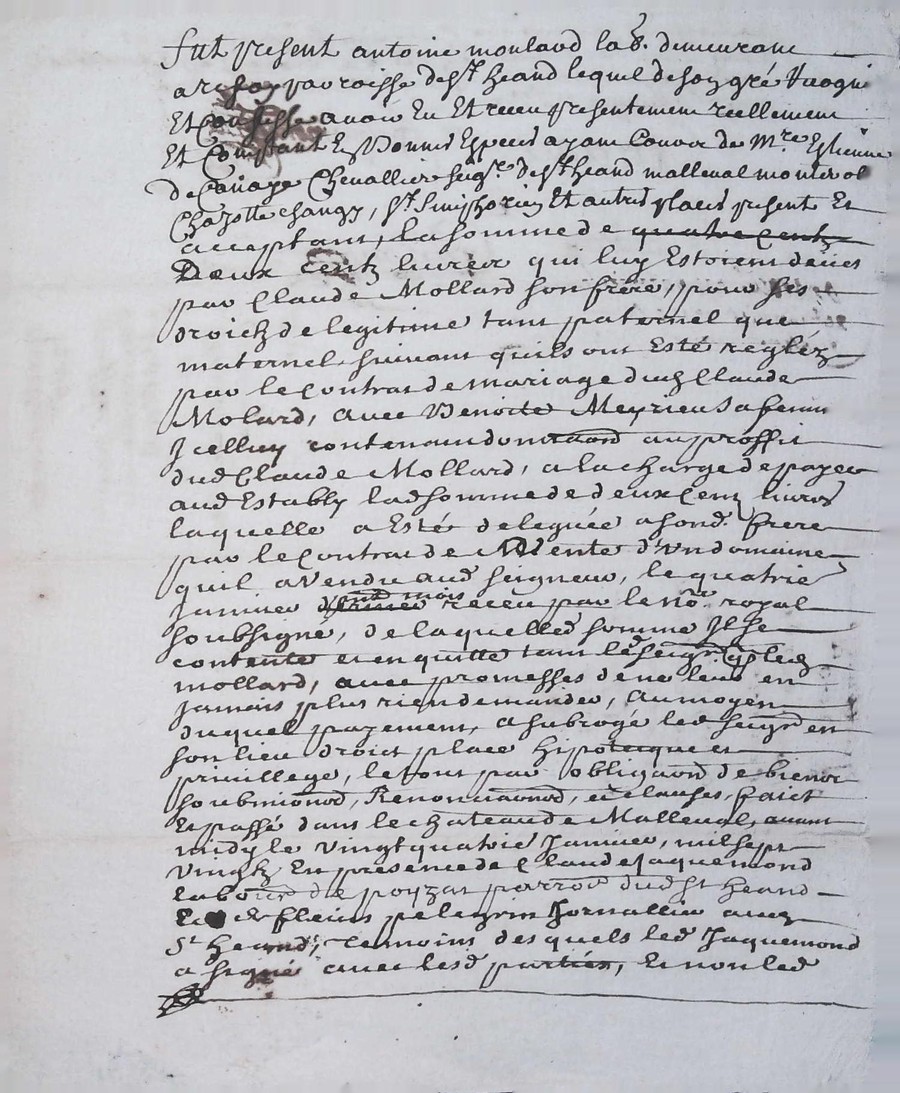 fut present antoine moulard lab.r demeurant
a paroisse de St heand lequel de son gré
Et confesse avoir Eu Et receu presentement reellement
Et Comptant En Bonnes Especes ayant Cours de Mre Estienne
de Chevallier seigr. de St heand malleval
Chazotte changy, St Simphorien Et autres places present Et
acceptant, la somme de quatre Centz
Deux centz livres qui luy Estoient deües
par Claude Mollard son frere, pour ses
droictz de legitime tant paternel que
maternel suivant quils ont Esté reglez
par le Contrat de mariage dud Claude
Molard, avec Benoite Meyrieu sa femme
Icelluy contenant donnaon au proffit
dud Claude Mollard, a la charge de payer
aud Estably lad somme de deux Cent livres
laquelle a Esté deleguée a sond. frere
par le Contrat de Vente d'un domaine
quil a Vendu aud seigneur, le quatrie
Janvier receu par le nore royal
soubsigné, de laquelle d somme Il se
contente et en quitte tant led seigr led
mollard, avec promesses de ne leur en
jamais plus rien demander, au moyen
duquel payement, a subrogé led seigr en
son lieu droict place hipoteque et
privillege, le tout par obligaon de biens
soubmions, Renonciaons, et clauses, faict
Et passé dans le chateau de Malleval, avant
midy le vingt quatrie Janvier, mil sept
vingtz En presence de Claude Jaquemond
labour de parroe dud St heand
Et fleury pelegrin Jornallier
St heand, temoins desquels led Jaquemond
a signé avec lesd parties, Et non led